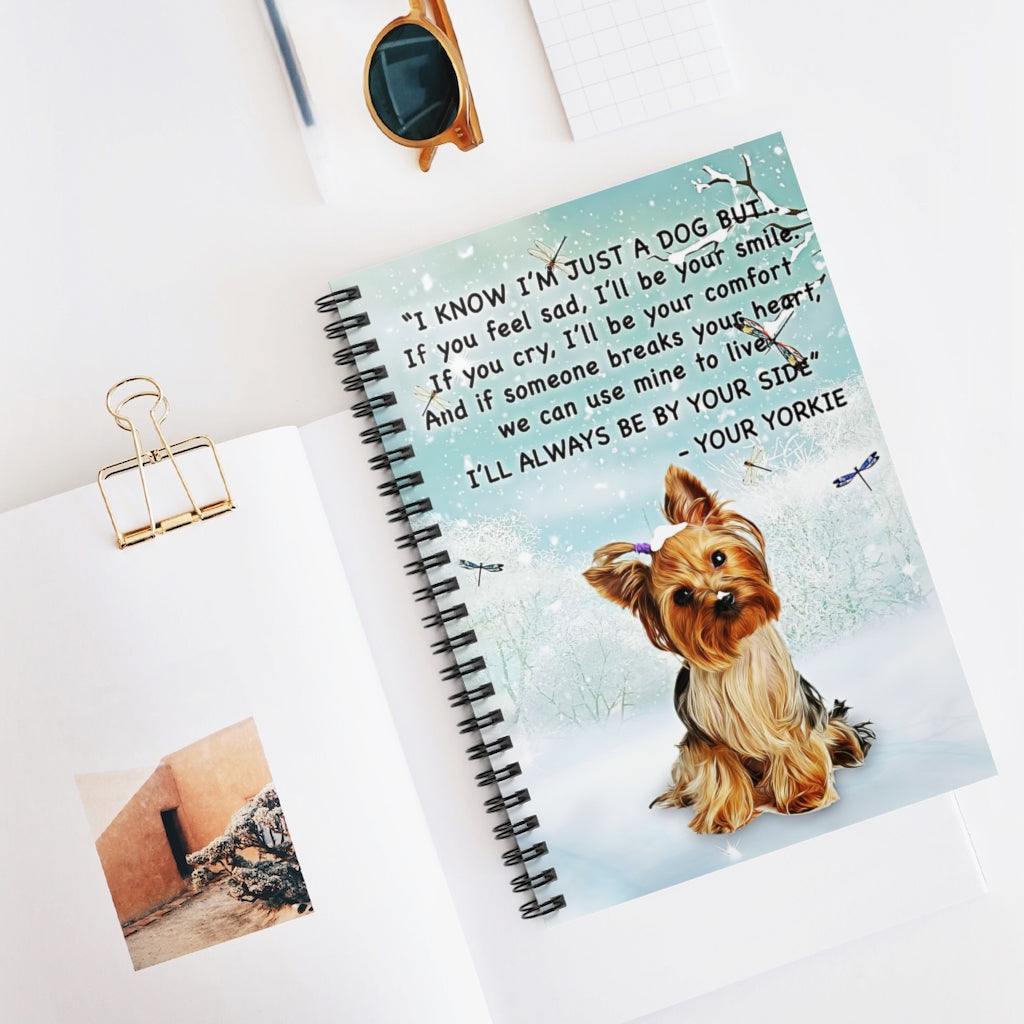 “I KNOW I’M JUST A DOG BUT...
If you feel sad, I’ll be your smile.
If you cry, I’ll be your comfort
And if someone breaks your heart,
we can use mine to live
I’LL ALWAYS BE BY YOUR SIDE”
- YOUR YORKIE